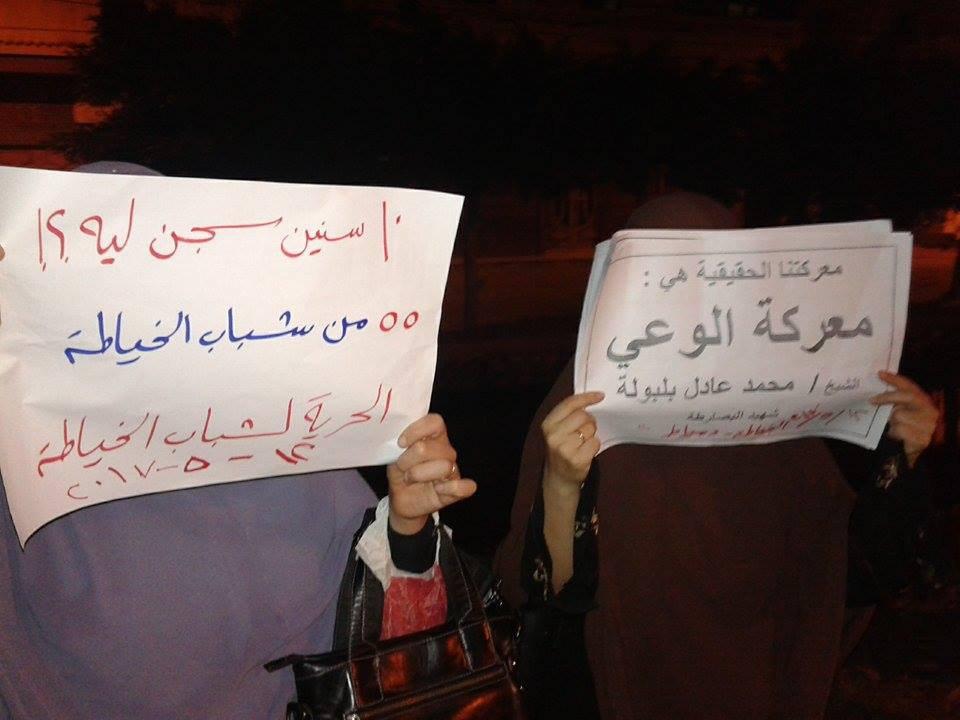 ١٠ سنين سجن ليه ؟!!
٥٥ من شباب الخياطة
الحرية لشباب الخياطة
١٢ - ٥ - ٢٠١٧
معركتنا الحقيقية هي :
معركة الوعي
الشيخ / محمد عادل بلبولة
شهيد البصارطة
الخياطة - دمياط